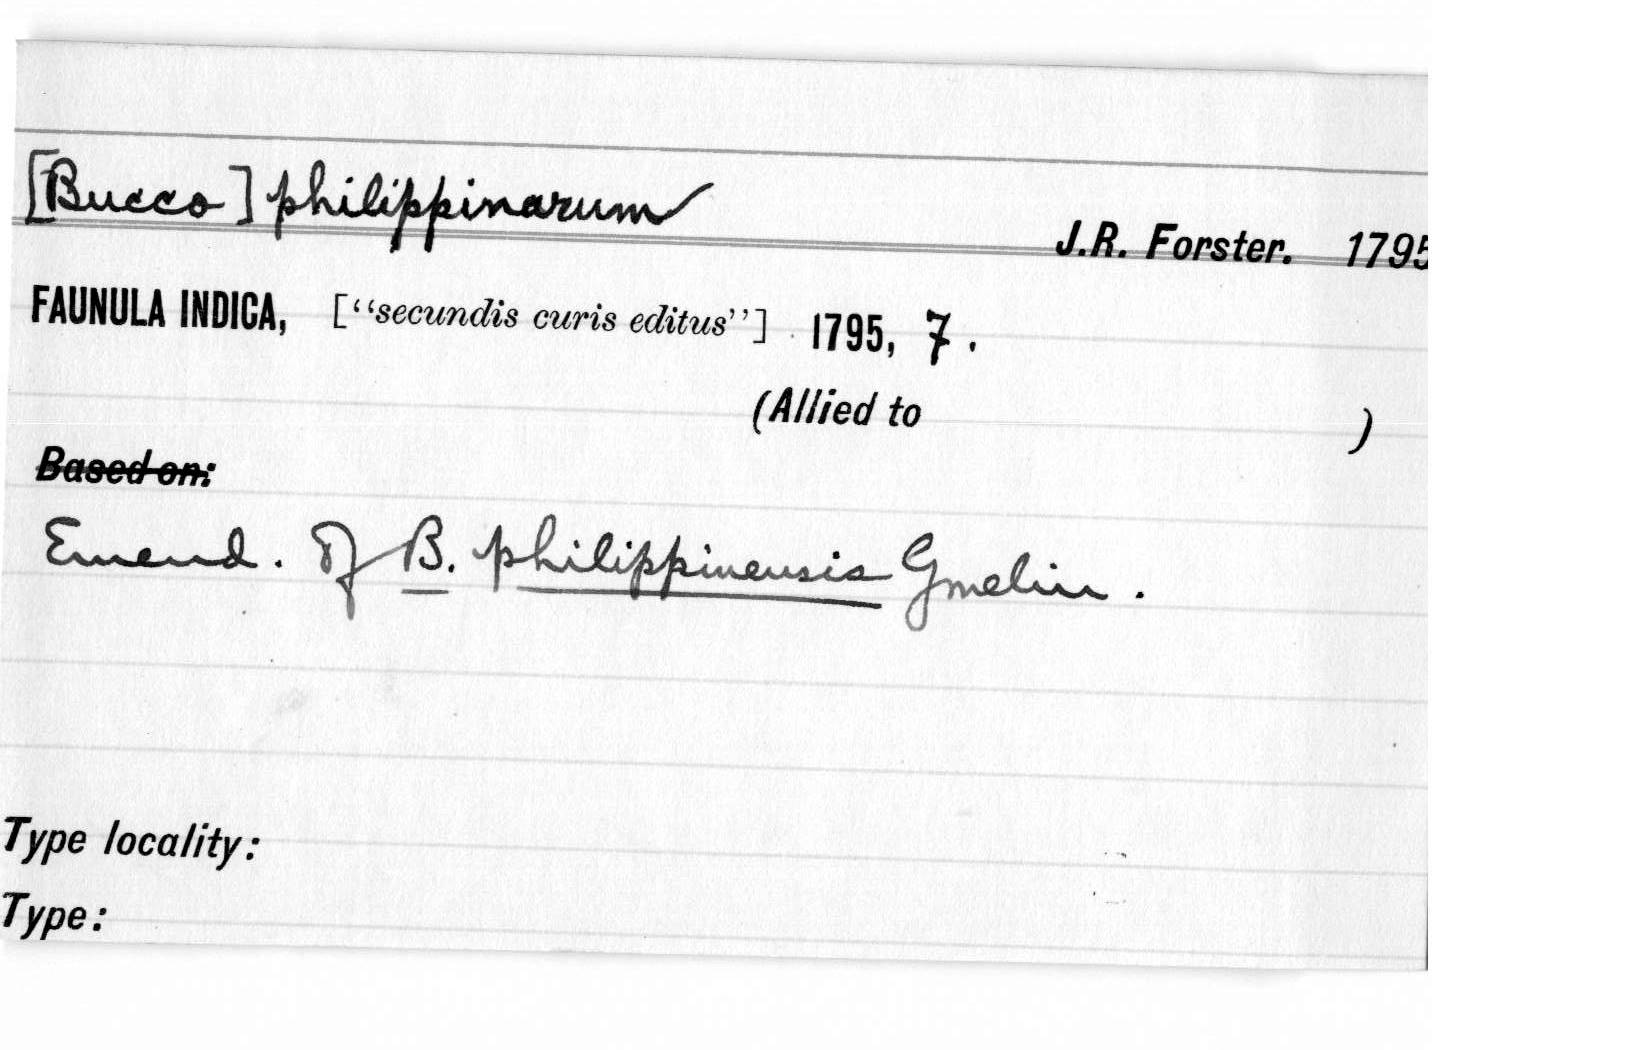 [Bucco] philippinarum
J.R. Forster. 1795
FAUNULA INDICA, [“secundis curis editus”] 1795, 7.
(Allied to )
Based on:
Emend. of B. philippinensis Gmelin.
Type locality:
Type: